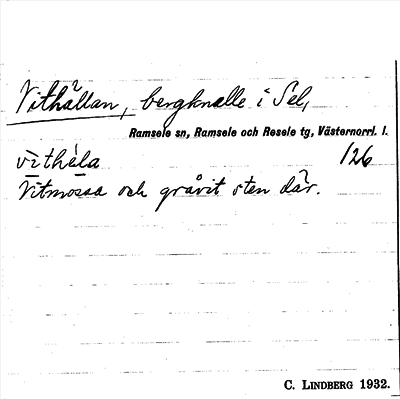 Vithällan, bergknalle i Sel,
Ramsele sn, Ramsele och Resele tg, Västernorrl. l.
vìthèla 126
Vitmossa och gråvit sten där.
C. LINDBERG 1932.